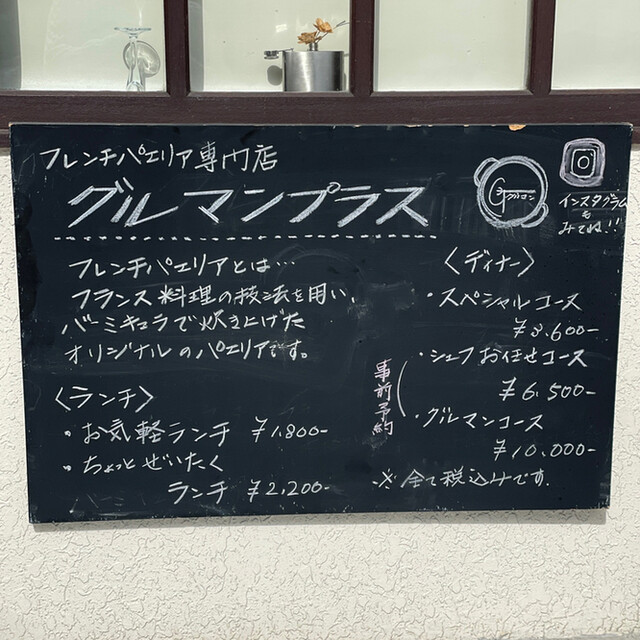 フレンチパエリア専門店
グルマンプラス
インスタグラム
も
みてね!!
フレンチパエリアとは…
フランス料理の技法を用い、
バーミキュラで炊き上げた
オリジナルのパエリアです。
〈ランチ〉
・お気軽ランチ ¥1,800-
・ちょっとぜいたく
ランチ ¥2,200-
〈ディナー〉
・スペシャルコース
¥3,600-
・シェフお任せコース
¥6,500-
・グルマンコース
¥10,000-
事前予約
※全て税込みです.